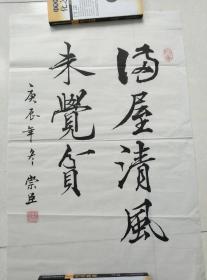 满屋清風
未覺貧
庚辰年冬 崇臣